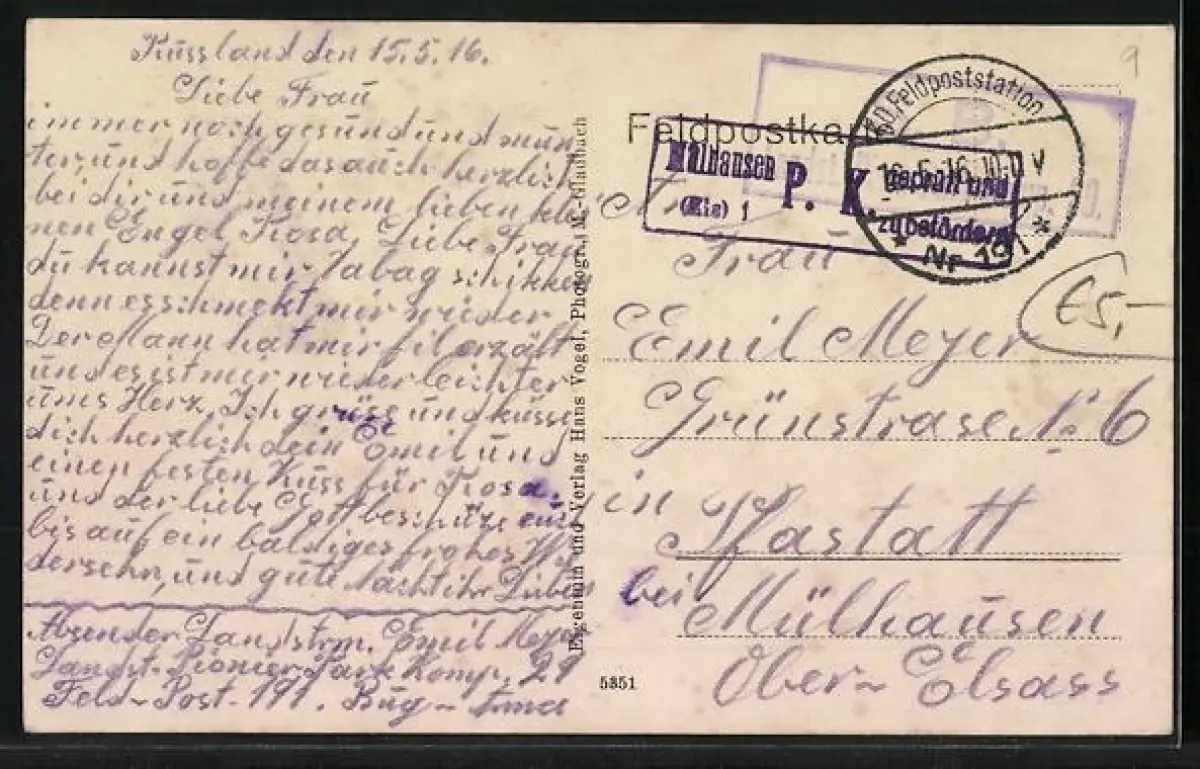 Russland den 15.5.16.
Liebe Frau
immer noch gesund und mun
ter, und hoffe das auch herzlich
bei dir und meinem lieben klei
nen Engel Rosa, Liebe Frau
du kannst mir Tabag schikken
denn es schmekt mir wieder
Der Mann hat mir fil erzält
und es ist mir wieder leichter
ums Herz, Ich grüse und küsse
dich herzlich dein Emil und
einen festen Kuss für Rosa.
und der liebe Gott beschütze euch
bis auf ein baldiges frohes Wie
dersehn, und gute Nacht ihr Lieben
Absender Landstrm. Emil Meyer
Landst. Pionier-Park Komp. 29
Feld-Post-191. Bug-
Eigentum und Verlag Hans Vogel, Photogr., M.-Gladbach
9
Feldpostkarte
K.D. Feldpoststation
16.5.16. 10-11 V
* Nr 191 *
Mülhausen
(Els) 1
P. K.
geprüft und
zu befördern
An
Frau
Emil Meyer
€5,-
Grünstrase No 6
in Pfastatt
bei Mülhausen
Ober-Elsass
5351